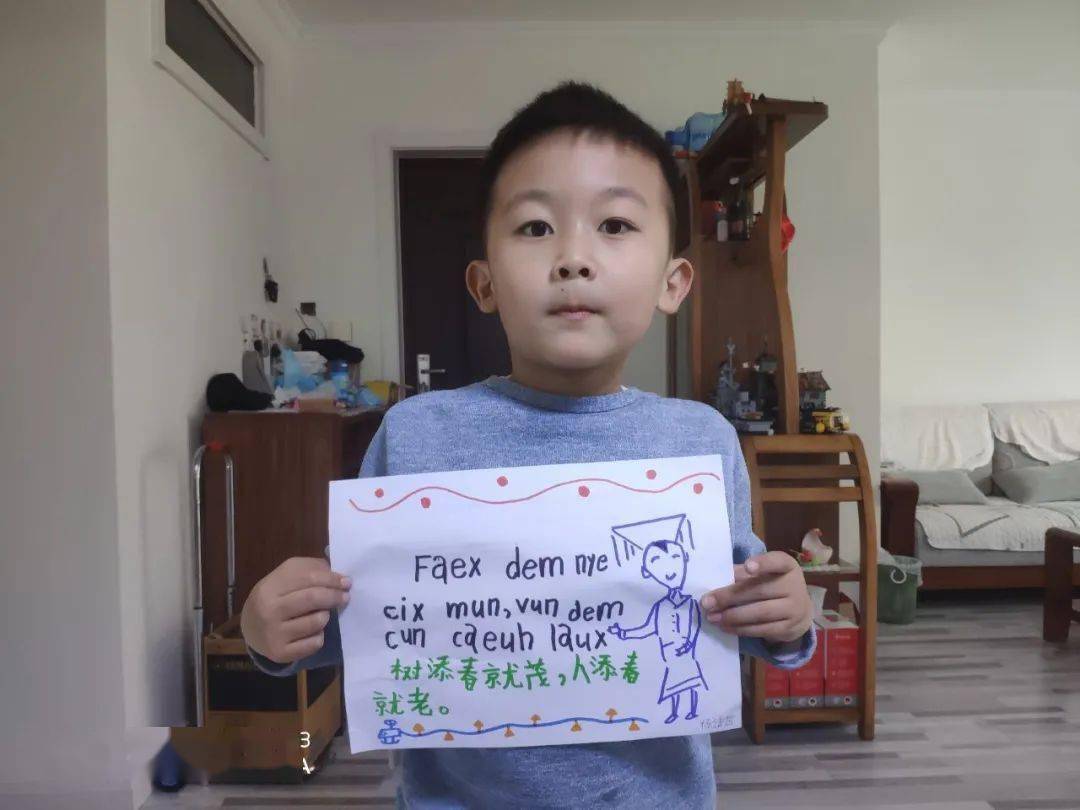 Faex dem nye
cix mun, vun dem
cun caeuh laux
树添春就茂，人添春
就老。